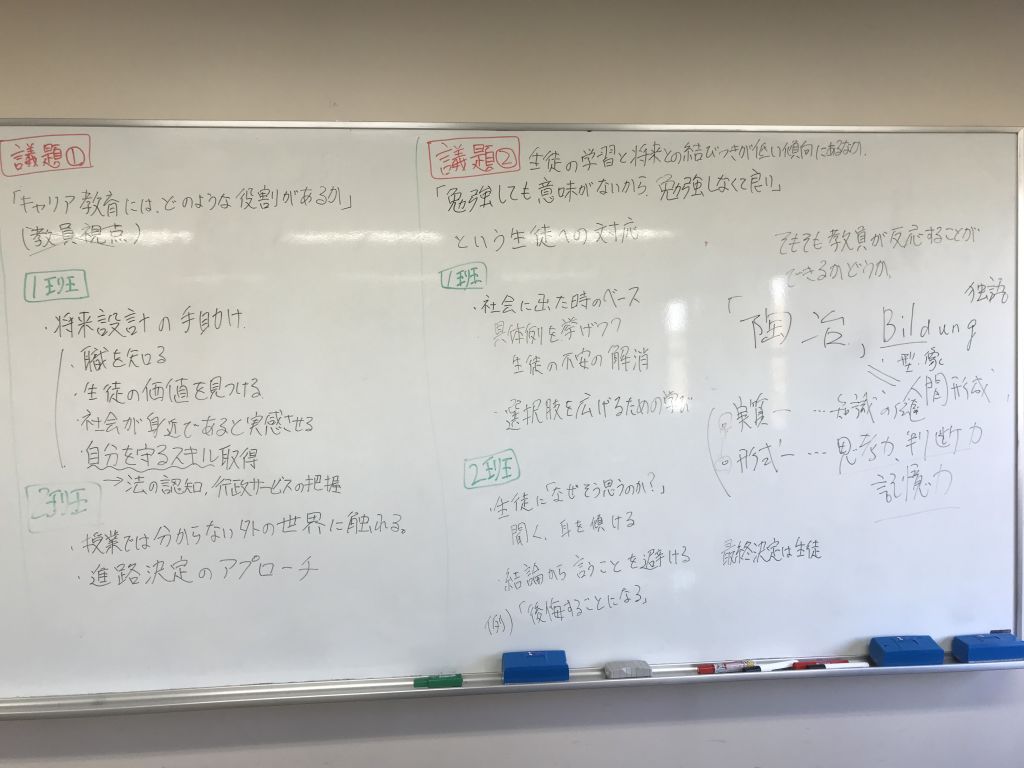 議題①
「キャリア教育には、どのような役割があるか」
(教員視点)
1班
・将来設計の手助け.
・職を知る
・生徒の価値を見つける
・社会が身近であると実感させる
・自分を守るスキル取得
→法の認知, 行政サービスの把握
2班
・授業では分からない外の世界に触れる。
・進路決定のアプローチ
議題② 生徒の学習と将来との結びつきが低い傾向にあるなか.
「勉強しても意味がないから、勉強しなくて良い」
という生徒への対応
1班
・社会に出た時のベース
具体例を挙げつつ
生徒の不安の解消
・選択肢を広げるための学び
2班
・生徒に「なぜそう思うのか?」
聞く、耳を傾ける
・結論から言うことを避ける
(例)「後悔することになる」
そもそも教員が反応することが
できるかどうか
独語
「陶冶, Bildung
型・像
人間形成
実質– …知識の
形式– …思考力、判断力
記憶力
最終決定は生徒